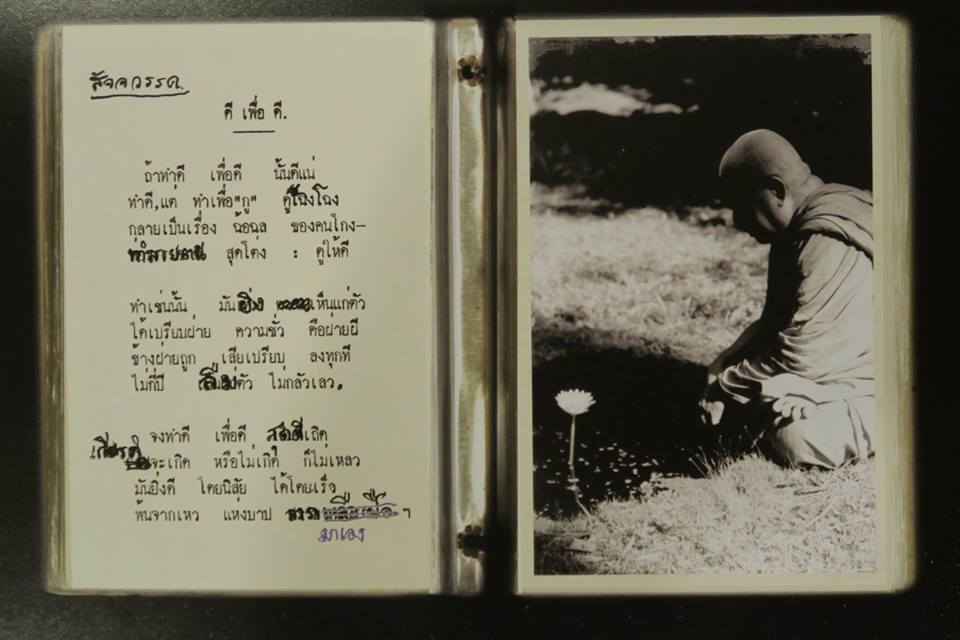 สัจจวรรค.
ดี เพื่อ ดี.
ถ้าทำดี เพื่อดี นั้นดีแน่
ทำดี,แต่ ทำเพื่อ"กู" ดูโฉงโฉง
กลายเป็นเรื่อง ฉ้อฉล ของคนโกง-
สุดโต่ง : ดูให้ดี
ทำเช่นนั้น มันยิ่ง เห็นแก่ตัว
ได้เปรียบฝ่าย ความชั่ว คือฝ่ายผี
ข้างฝ่ายถูก เสียเปรียบ ลงทุกที
ไม่กี่ปี ลืมตัว ไม่กลัวเลว.
จงทำดี เพื่อดี เถิด
จะเกิด หรือไม่เกิด ก็ไม่เหลว
มันยิ่งดี โดยนิสัย ได้โดยเร็ว
พ้นจากเหว แห่งบาป ฯ